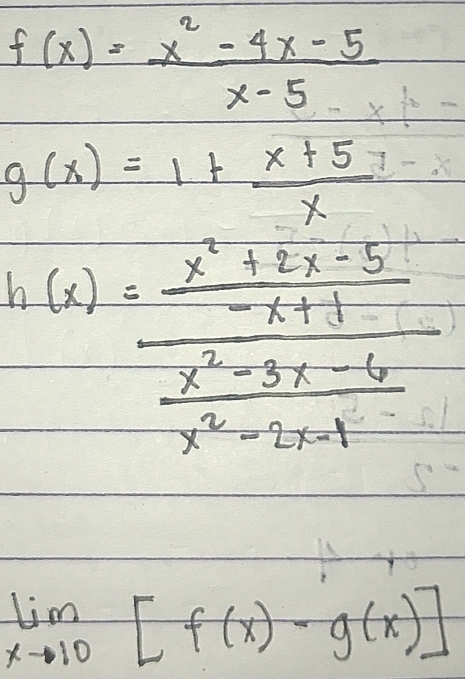 f(x) = x² - 4x - 5 / x - 5
g(x) = 1 + x + 5 / x
h(x) = x² + 2x - 5 / -x + 1 / x² - 3x - 6 / x² - 2x - 1
lim x→10 [f(x) - g(x)]